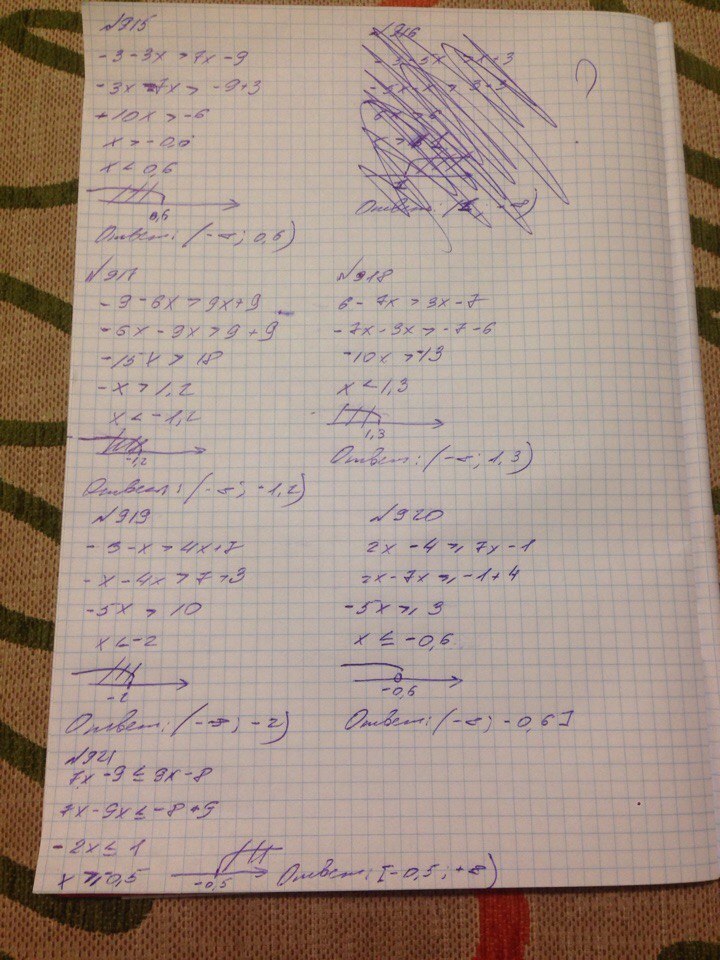 №915
-3-3x>7x-9
-3x-7x>-9+3
+10x>-6
x>-0,6
x<0,6
0,6
Ответ: (-∞; 0,6)
№916
Ответ:
№917
-9-6x>9x+9
-6x-9x>9+9
-15x>18
-x>1,2
x<-1,2
-1,2
Ответ: (-∞; -1,2)
№918
6-7x>3x-7
-7x-3x>-7-6
-10x>-13
x<1,3
1,3
Ответ: (-∞; 1,3)
№919
-3-x>4x+7
-x-4x>7+3
-5x>10
x<-2
-2
Ответ: (-∞; -2)
№920
2x-4≥7x-1
2x-7x≥-1+4
-5x≥3
x≤-0,6
-0,6
Ответ: (-∞; -0,6]
№921
7x-9≤9x-8
7x-9x≤-8+9
-2x≤1
x≥-0,5
-0,5
Ответ: [-0,5; +∞)